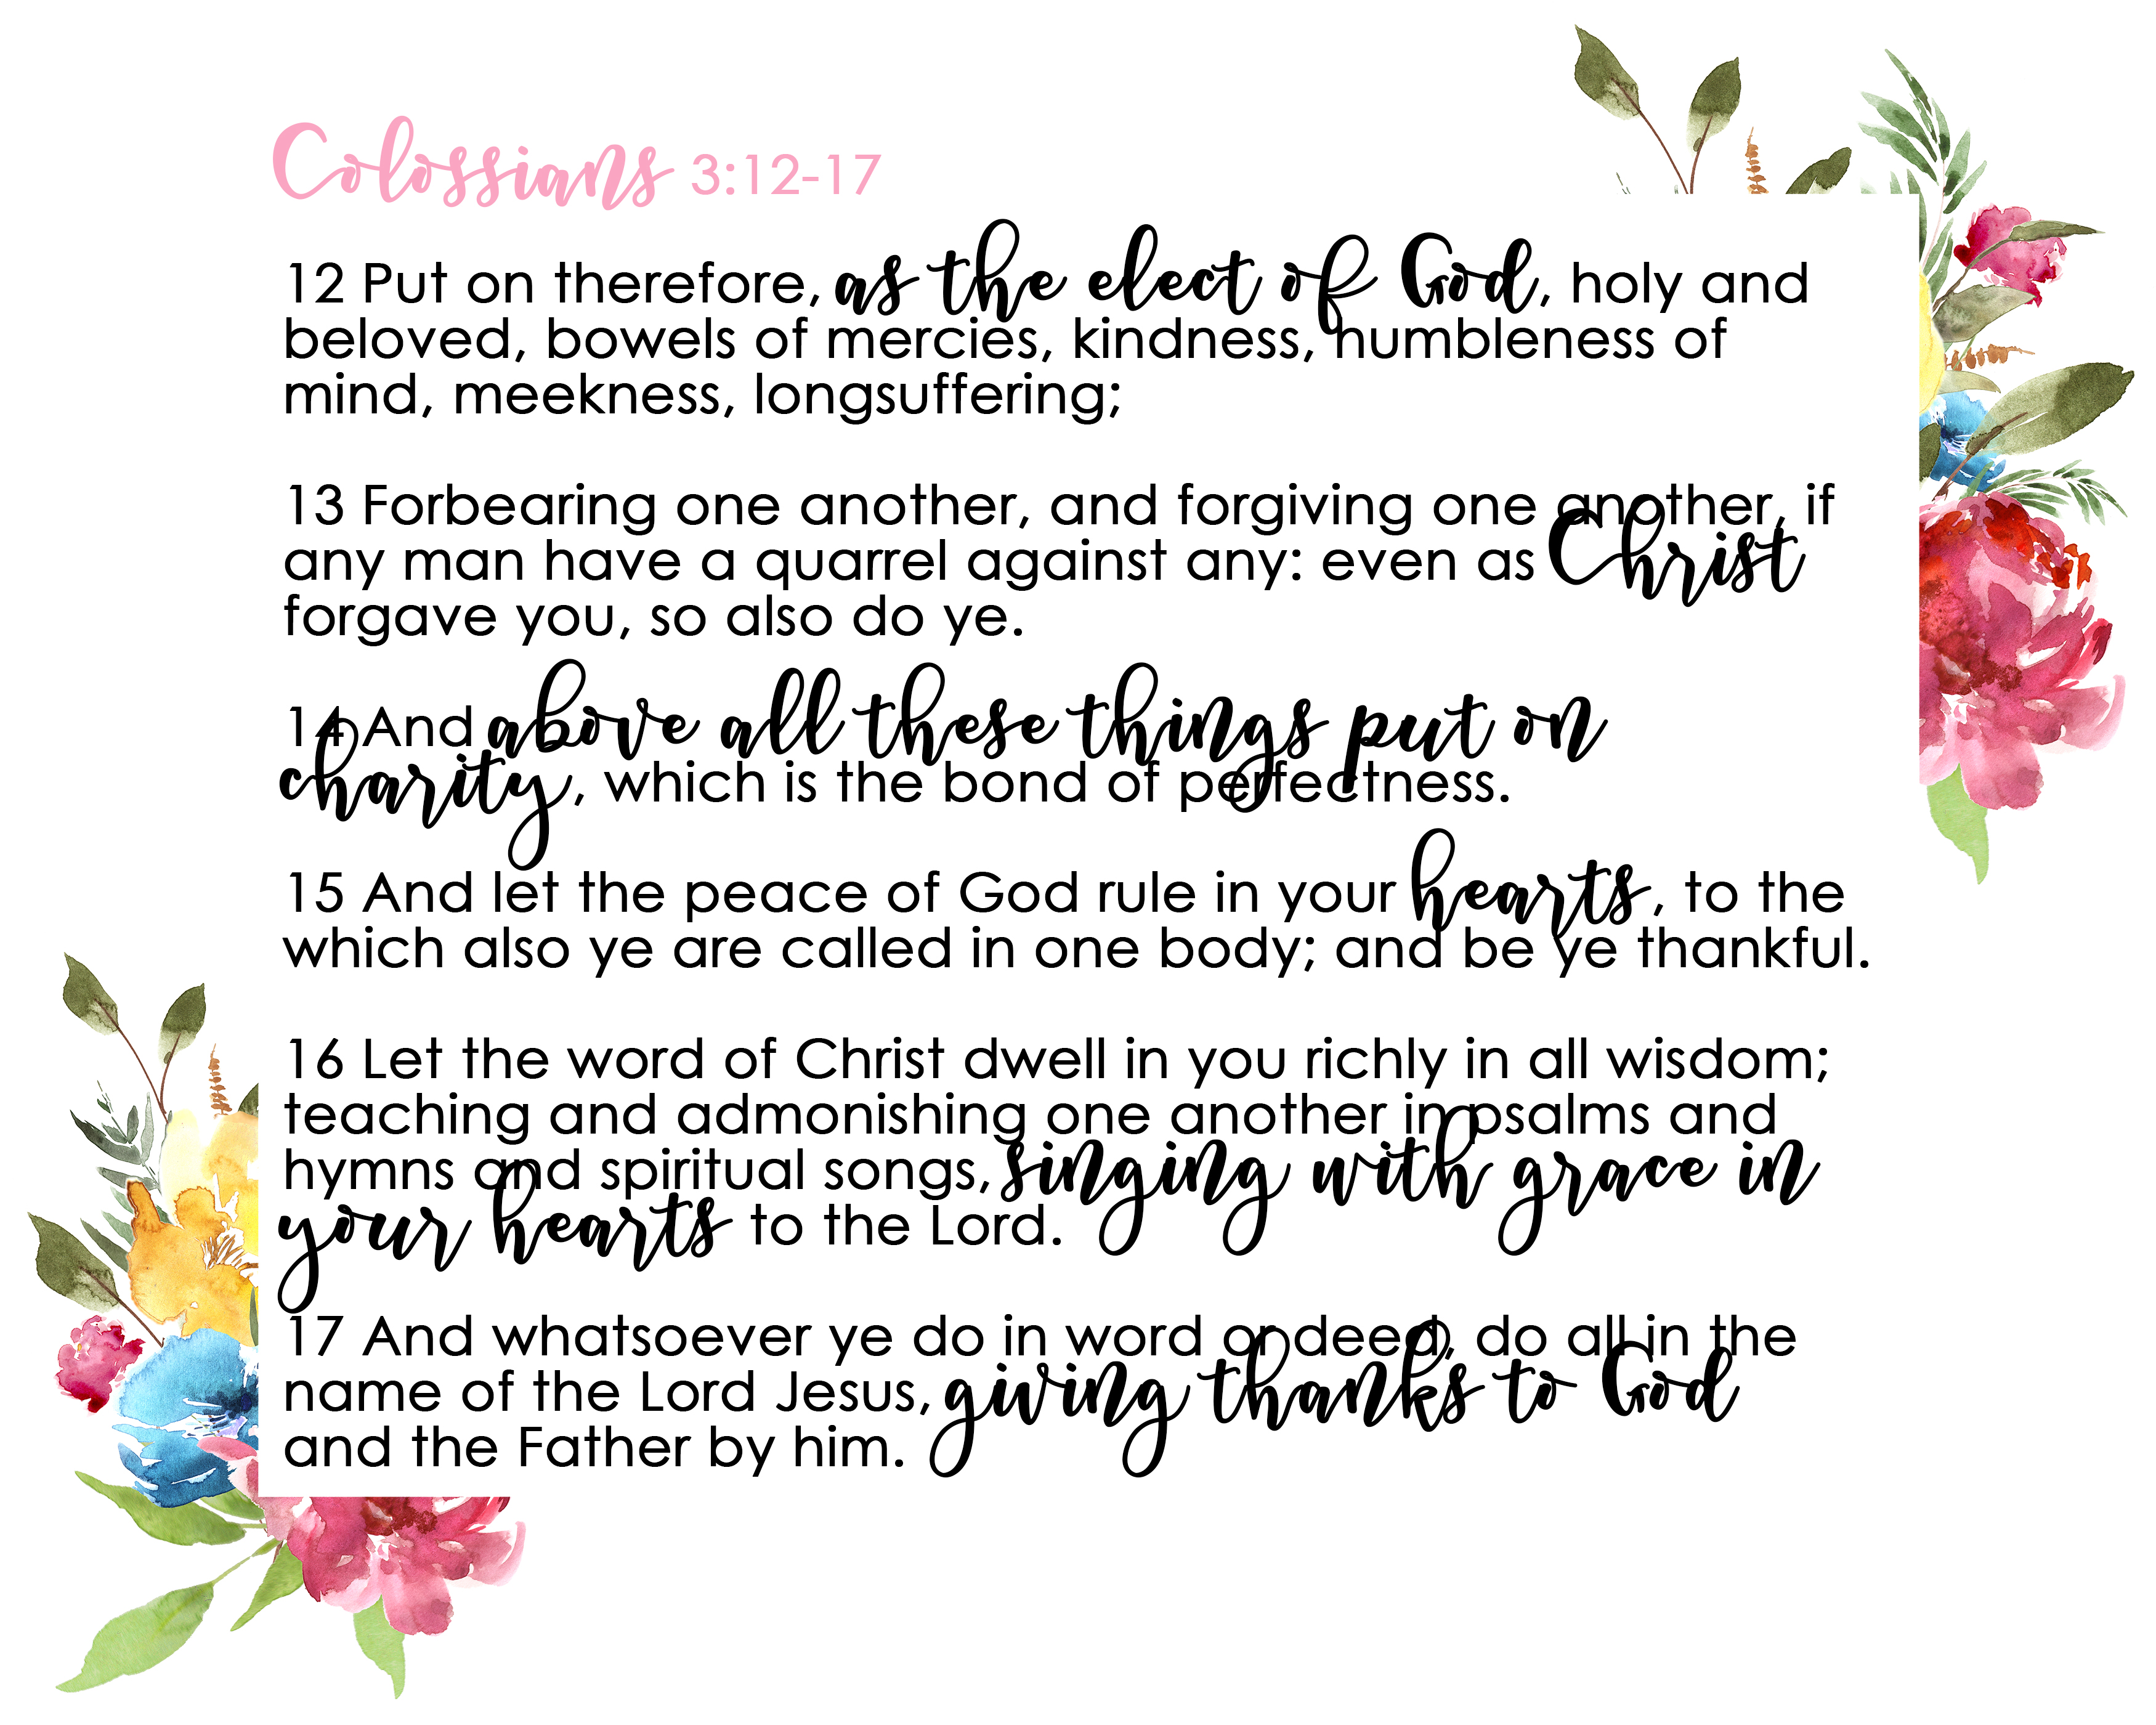 Colossians 3:12-17
12 Put on therefore, as the elect of God, holy and
beloved, bowels of mercies, kindness, humbleness of
mind, meekness, longsuffering;
13 Forbearing one another, and forgiving one another, if
any man have a quarrel against any: even as Christ
forgave you, so also do ye.
14 And above all these things put on
charity, which is the bond of perfectness.
15 And let the peace of God rule in your hearts, to the
which also ye are called in one body; and be ye thankful.
16 Let the word of Christ dwell in you richly in all wisdom;
teaching and admonishing one another in psalms and
hymns and spiritual songs, singing with grace in
your hearts to the Lord.
17 And whatsoever ye do in word or deed, do all in the
name of the Lord Jesus, giving thanks to God
and the Father by him.